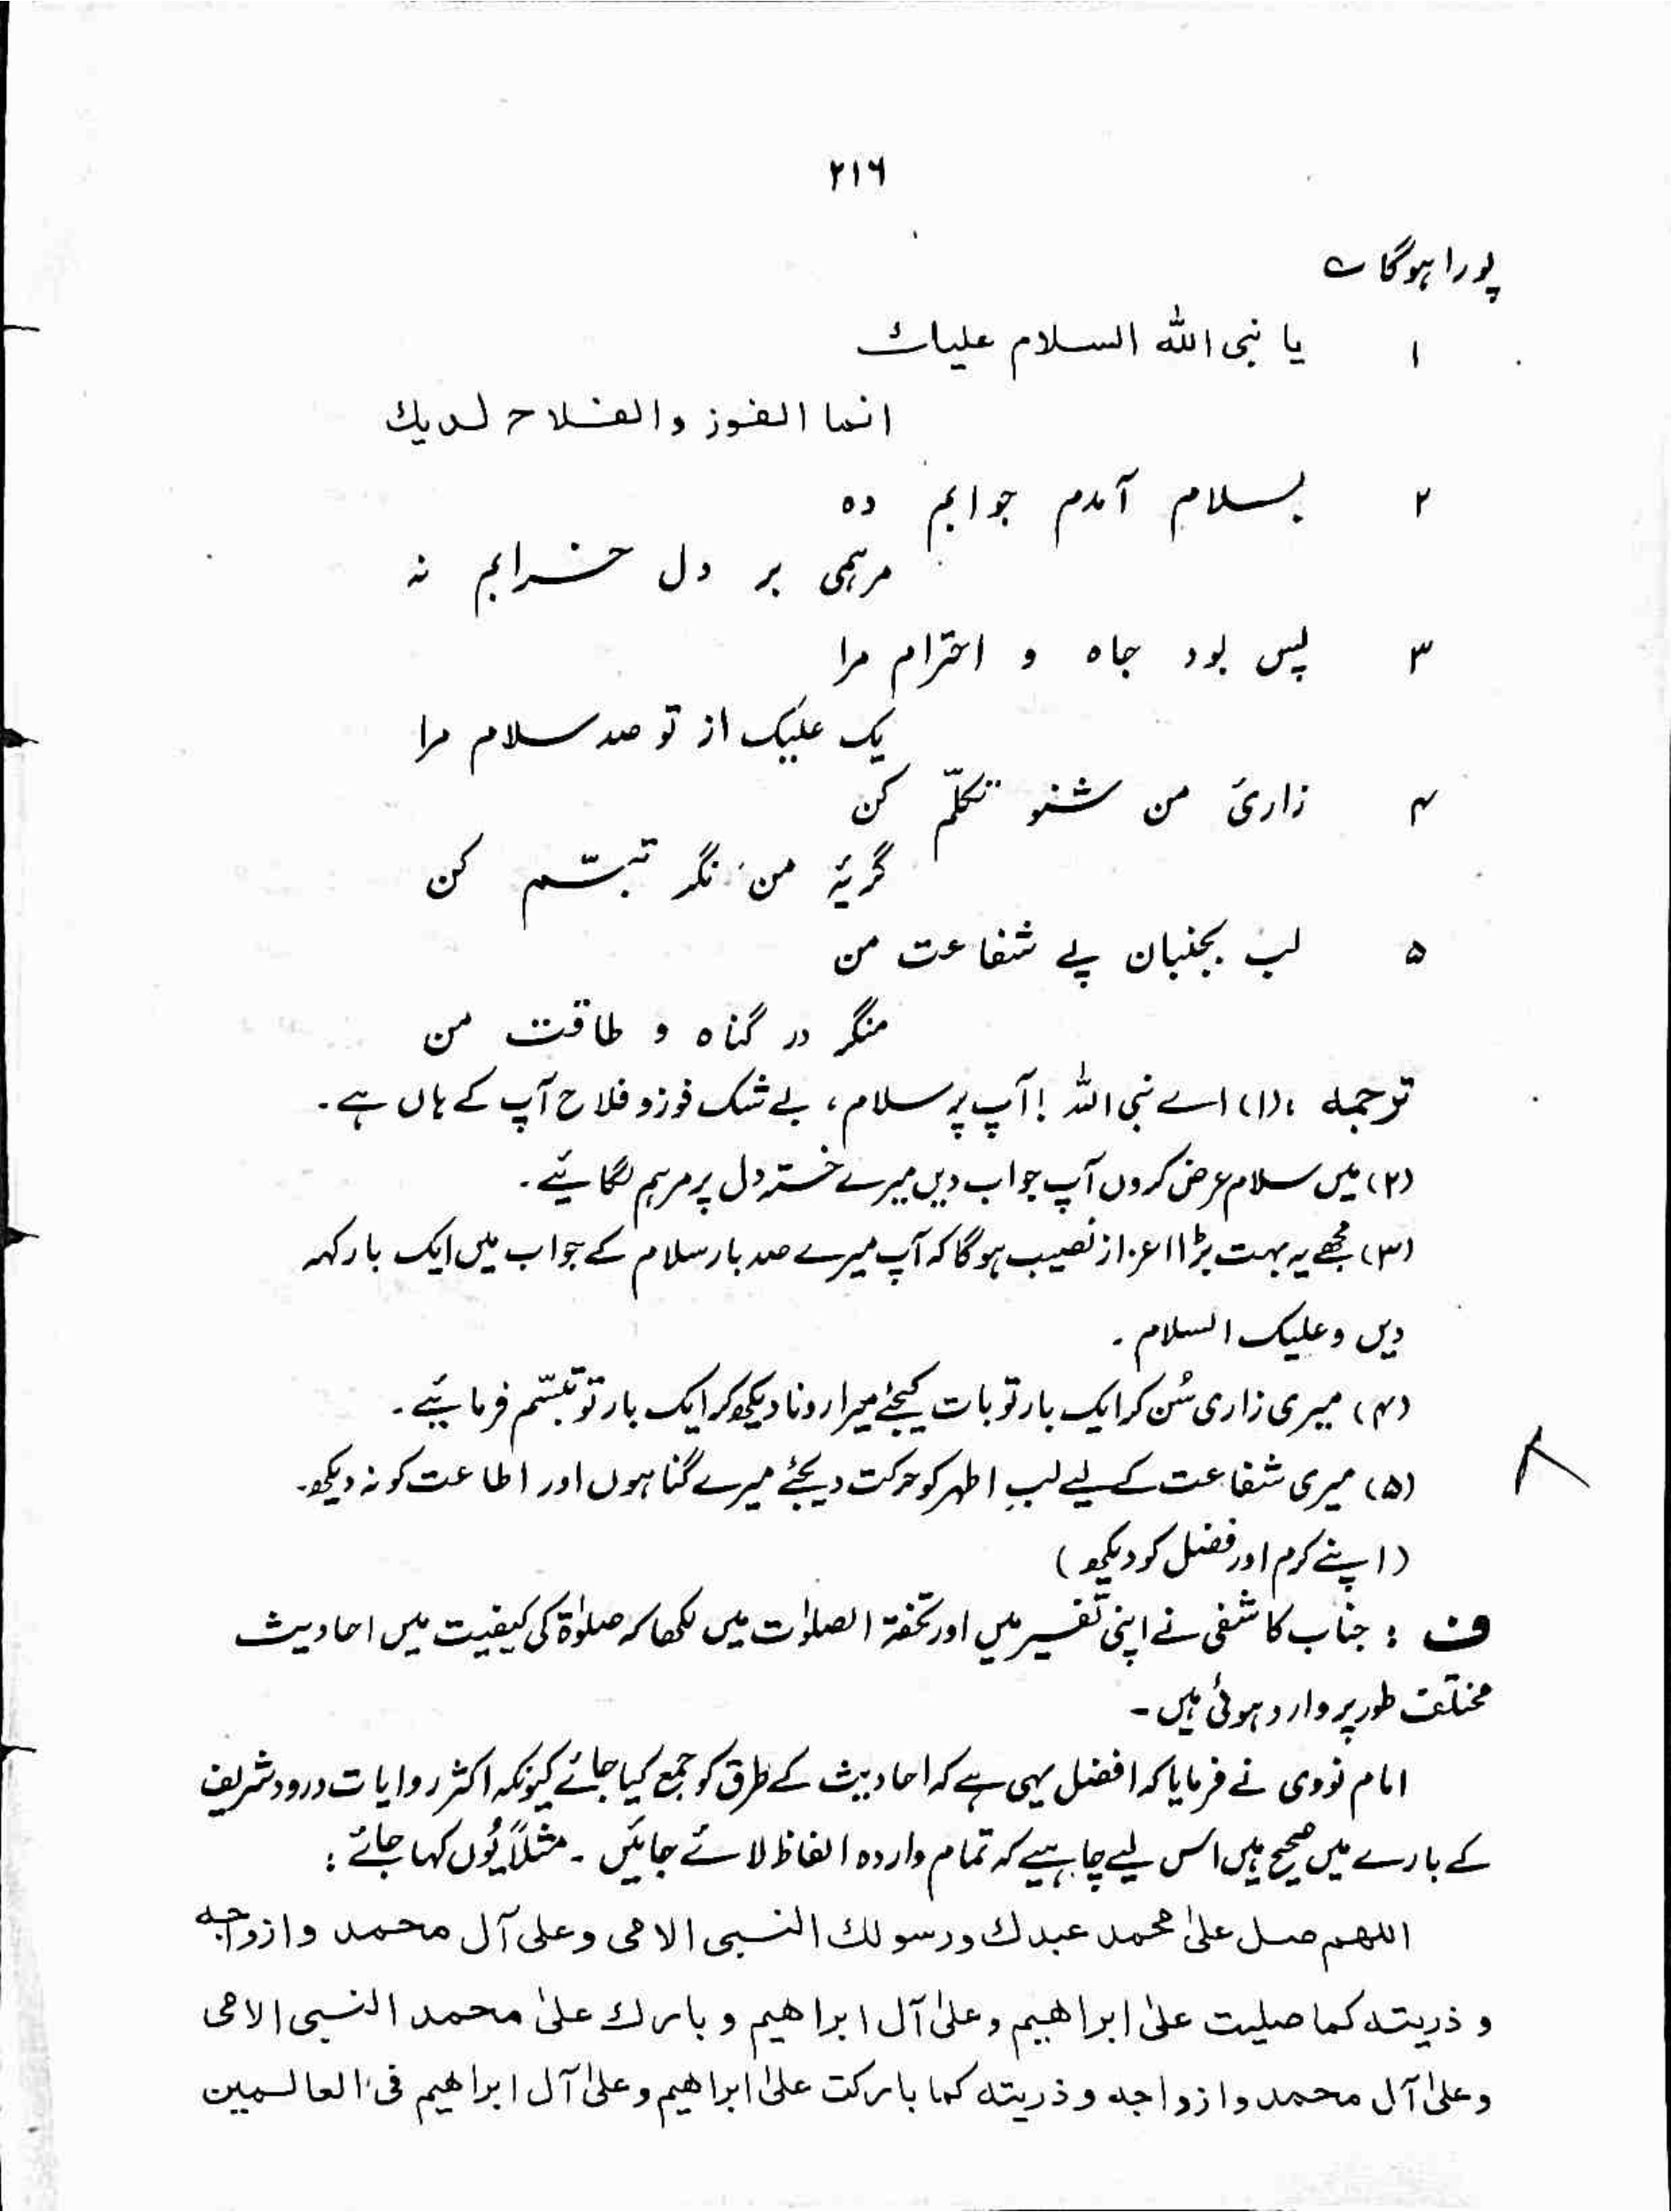 ۲۱۶
پورا ہوگا ؎
۱ یا نبی اللہ السلام علیك
انما الفوز والفلاح لدیك
۲ بسلام آمدم جوابم دہ
مرہمی بر دل خرابم نہ
۳ پس بود جاہ و احترام مرا
یک علیک از تو صد سلام مرا
۴ زاریٔ من شنو تکلّم کن
گریۂ من نگر تبسّم کن
۵ لب بجنبان پے شفاعت من
منگر در گناہ و طاقت من
ترجمہ : (۱) اے نبی اللہ ! آپ پر سلام، بے شک فوز و فلاح آپ کے ہاں ہے۔
(۲) میں سلام عرض کروں آپ جواب دیں میرے خستہ دل پر مرہم لگائیے۔
(۳) مجھے یہ بہت بڑا اعزاز نصیب ہوگا کہ آپ میرے صد بار سلام کے جواب میں ایک بار کہہ
دیں وعلیک السلام۔
(۴) میری زاری سُن کر ایک بار تو بات کیجئے میرا رونا دیکھ کر ایک بار تو تبسّم فرمائیے۔
(۵) میری شفاعت کے لیے لبِ اطہر کو حرکت دیجئے میرے گناہوں اور اطاعت کو نہ دیکھو۔
(اپنے کرم اور فضل کو دیکھو)
ف : جناب کاشفی نے اپنی تفسیر میں اور تحفۃ الصلوٰت میں لکھا کہ صلوٰۃ کی کیفیت میں احادیث
مختلف طور پر وارد ہوئی ہیں۔
امام نووی نے فرمایا کہ افضل یہی ہے کہ احادیث کے طرق کو جمع کیا جائے کیونکہ اکثر روایات درود شریف
کے بارے میں صحیح ہیں اس لیے چاہیے کہ تمام واردہ الفاظ لائے جائیں۔ مثلاً یُوں کہا جائے :
اللھم صل علیٰ محمد عبدك ورسولك النبی الامی وعلی آل محمد وازواجه
وذریته کما صلیت علیٰ ابراھیم وعلیٰ آل ابراھیم وبارك علیٰ محمد النبی الامی
وعلیٰ آل محمد وازواجه وذریته کما بارکت علیٰ ابراھیم وعلیٰ آل ابراھیم فی العالمین